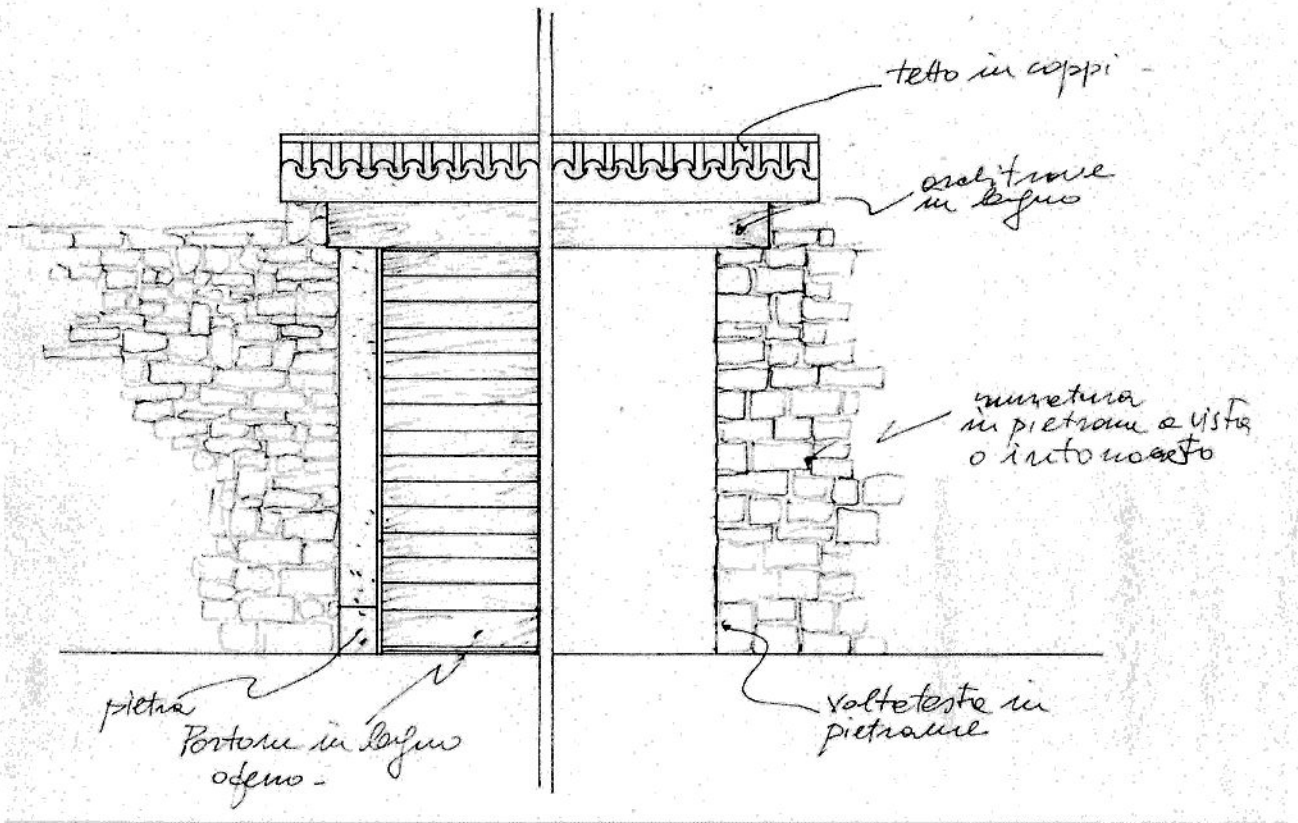 tetto in coppi -
architrave
in legno
muratura
in pietrame a vista
o intonacato
pietra
Portone in legno
voltatesta in
pietrame